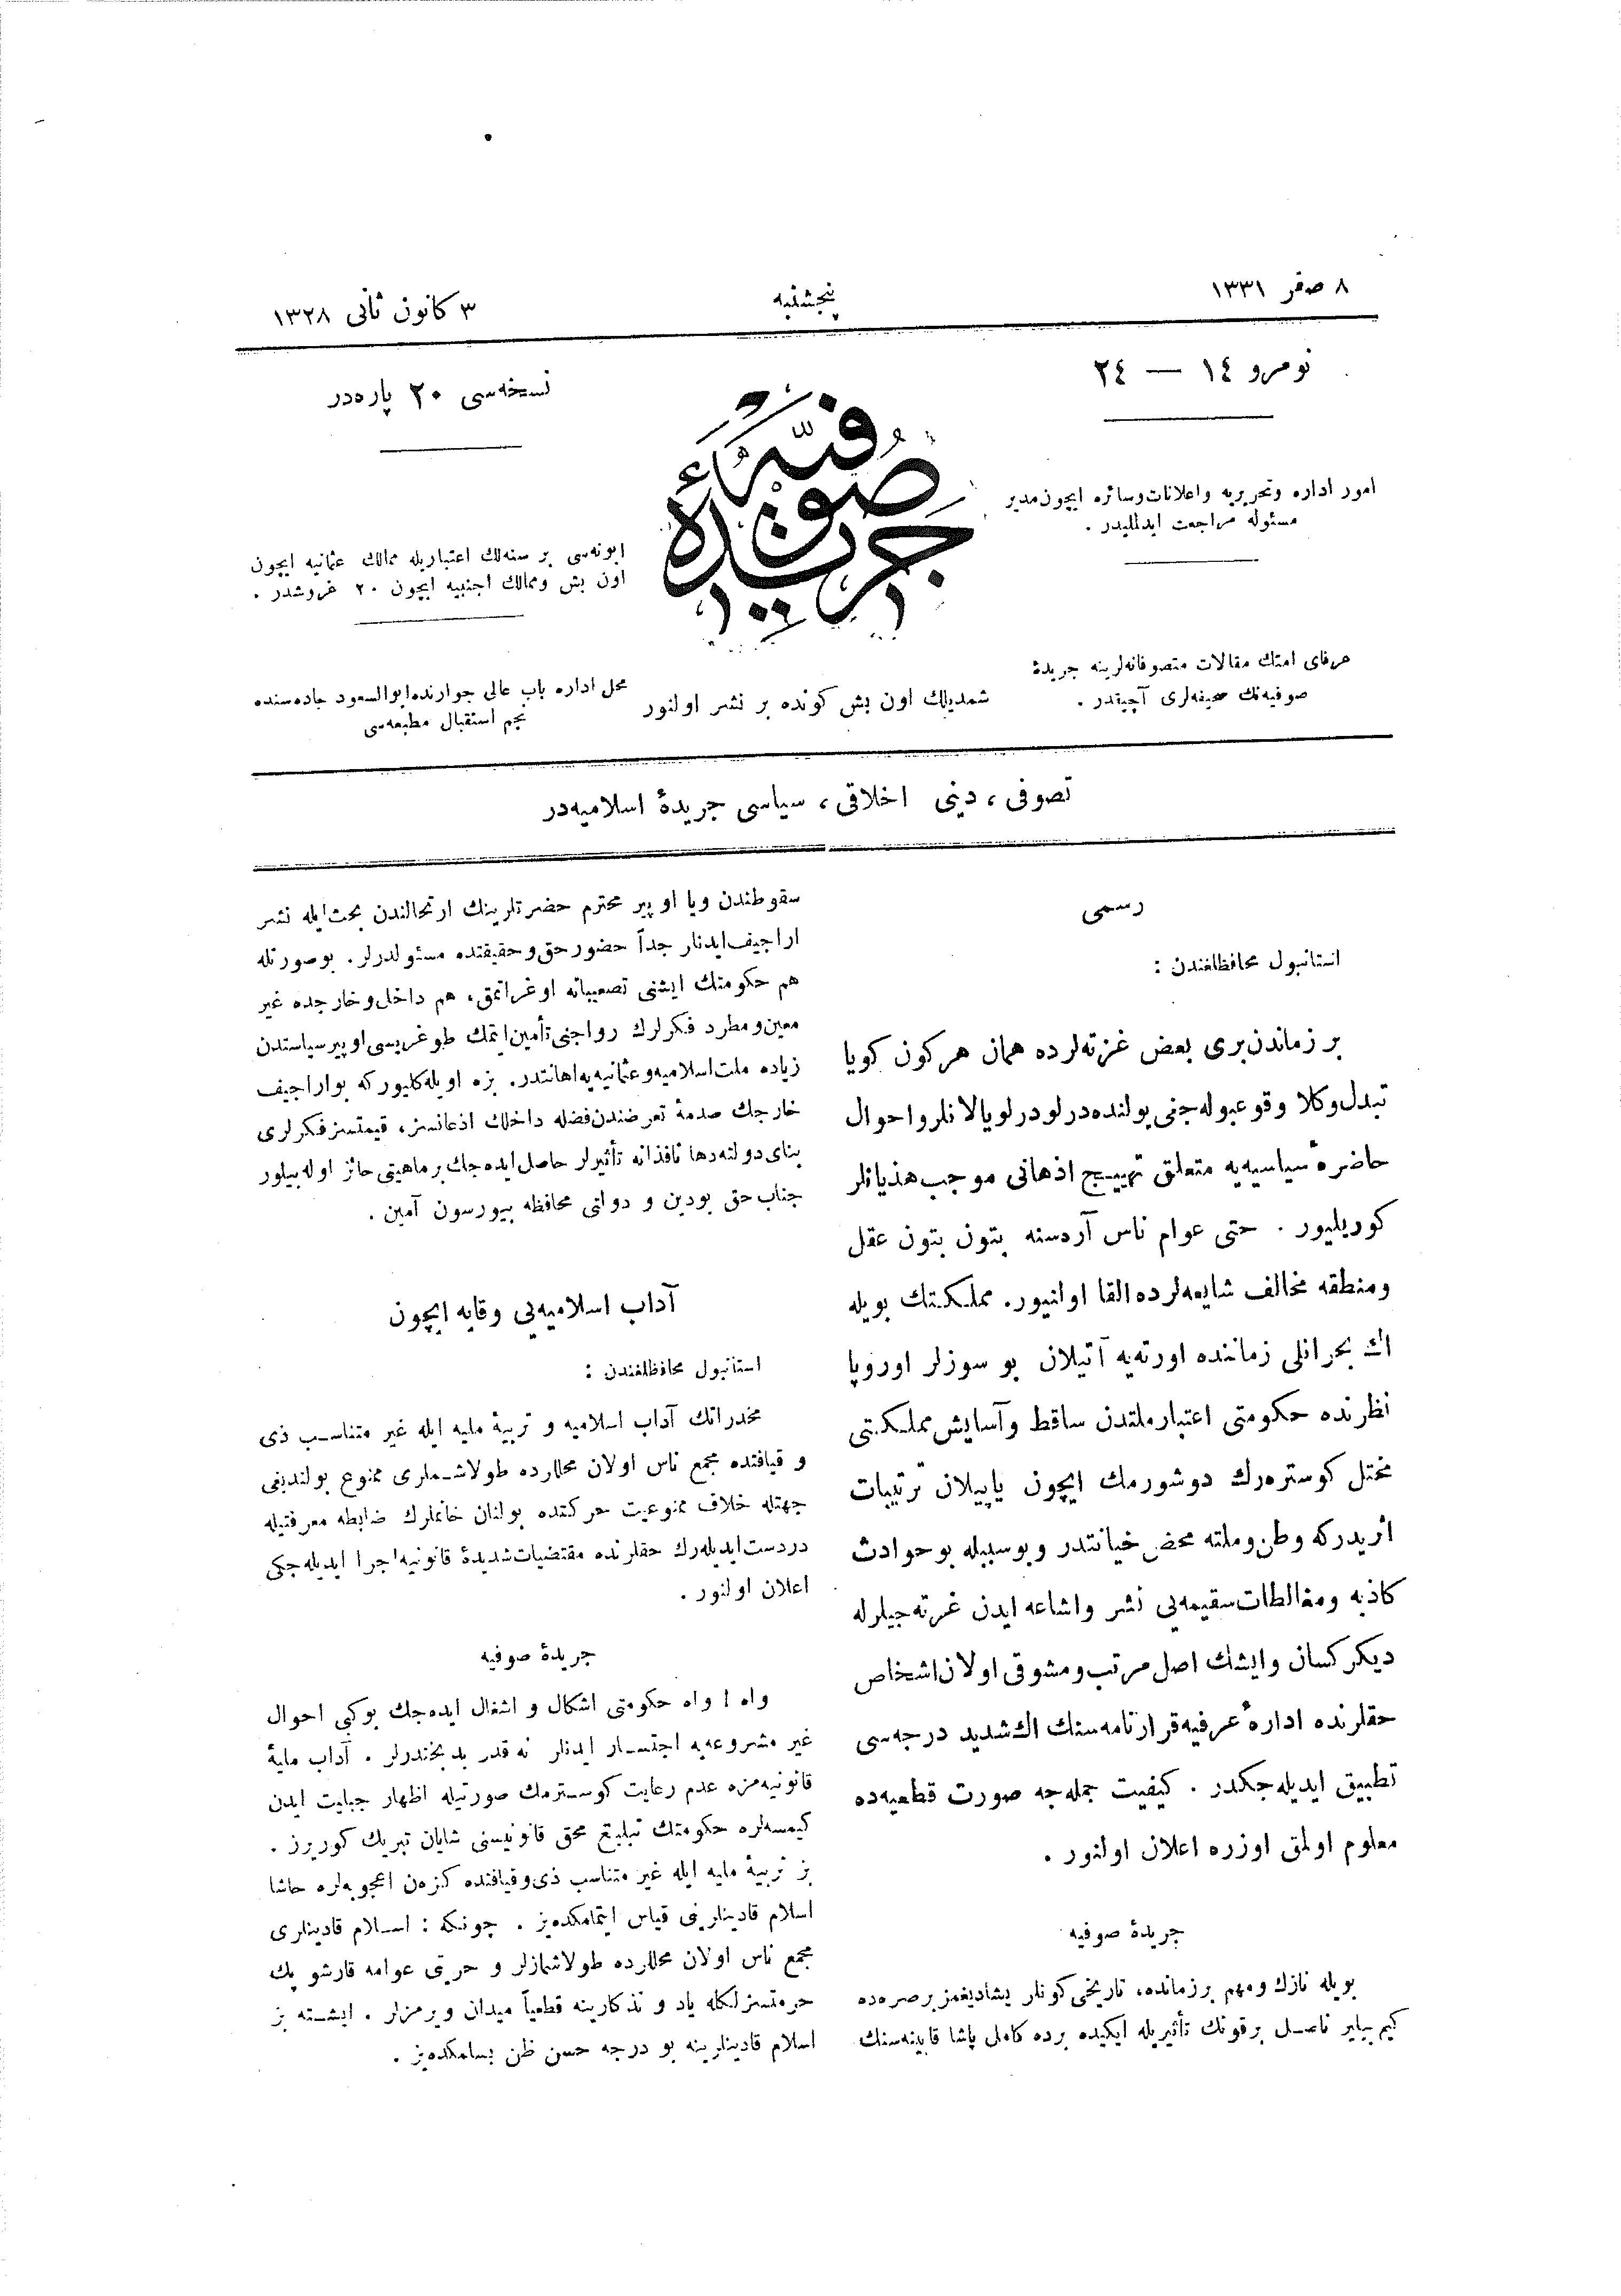 ٨ صفر ١٣٣١
پنجشنبه
٣ كانون ثانی ١٣٢٨
نومرو ١٤ — ٢٤
نسخه‌سی ٢٠ پاره‌در
جریدۀ صوفیه
امور اداره وتحریریه واعلانات وسائره ایچون مدیر
مسئوله مراجعت ایدلملیدر .
ابونه‌سی بر سنه‌لك اعتباریله ممالك عثمانیه ایچون
اون بش وممالك اجنبیه ایچون ٢٠ غروشدر .
عرفای امتك مقالات متصوفانه‌لرینه جریدۀ
صوفیه‌نك صحیفه‌لری آچیقدر .
شمدیلك اون بش كونده بر نشر اولنور
محل اداره باب عالی جوارنده ابوالسعود جاده‌سنده
نجم استقبال مطبعه‌سی
تصوفی ، دینی اخلاقی ، سیاسی جریدۀ اسلامیه‌در
رسمی
استانبول محافظلغندن :
بر زماندن بری بعض غزته‌لرده همان هركون كویا
تبدل وكلا وقوعبوله‌جنی یولنده درلو درلو یالانلر واحوال
حاضرۀ سیاسیه‌یه متعلق تهییج اذهانی موجب هذیانلر
كوریلیور . حتی عوام ناس آره‌سنه بتون بتون عقل
ومنطقه مخالف شایعه‌لرده القا اولنیور. مملكتك بویله
اك بحرانلی زماننده اورته‌یه آتیلان بو سوزلر اوروپا
نظرنده حكومتی اعتبار ملتدن ساقط وآسایش مملكتی
مختل كوستره‌رك دوشورمك ایچون یاپیلان ترتیبات
اثریدركه وطن وملته محض خیانتدر وبوسببله بو حوادث
كاذبه ومغالطات سقیمه‌یی نشر واشاعه ایدن غزته‌جیلرله
دیكر كسان وایشك اصل مرتب ومشوقی اولان اشخاص
حقلرنده ادارۀ عرفیه قرارنامه‌سنك اك شدید درجه‌سی
تطبیق ایدیله‌جكدر . كیفیت جمله‌جه صورت قطعیه‌ده
معلوم اولمق اوزره اعلان اولنور .
جریدۀ صوفیه
بویله نازك ومهم بر زمانده، تاریخی كونلر یشادیغمز بر صره‌ده
كیم بیلیر ناصل بر قوتك تأثیریله ایكیده برده كامل پاشا قابینه‌سنك
سقوطندن ویا او پیر محترم حضرتلرینك ارتحالندن بحث ایله نشر
اراجیف ایدنلر جداً حضور حق وحقیقتده مسئولدرلر. بوصورتله
هم حكومتك ایشنی تصعیباته اوغراتمق، هم داخل وخارجده غیر
معین ومطرد فكرلرك رواجنی تأمین ایتمك طوغریسی او پیر سیاستدن
زیاده ملت اسلامیه وعثمانیه‌یه اهانتدر. بزه اویله كلیوركه بو اراجیف
خارجك صدمۀ تعرضندن فضله داخلك اذعانسز، قیمتسز فكرلری
بنای دولته دها نافذانه تأثیرلر حاصل ایده‌جك بر ماهیتی حائز اوله‌بیلور
جناب حق بودین و دولتی محافظه بیورسون آمین .
آداب اسلامیه‌یی وقایه ایچون
استانبول محافظلغندن :
مخدراتك آداب اسلامیه و تربیۀ ملیه ایله غیر متناسب ذی
و قیافتده مجمع ناس اولان محللرده طولاشملری ممنوع بولندیغی
جهتله خلاف ممنوعیت حركتده بولنان خانملرك ضابطه معرفتیله
دردست ایدیله‌رك حقلرنده مقتضیات شدیدۀ قانونیه اجرا ایدیله‌جكی
اعلان اولنور .
جریدۀ صوفیه
واه ! واه حكومتی اشكال و اشغال ایده‌جك بوكبی احوال
غیر مشروعه‌یه اجتسار ایدنلر نه قدر بدبختدرلر . آداب ملیۀ
قانونیه‌مزه عدم رعایت كوسترمك صورتیله اظهار جبایت ایدن
كیمسه‌لره حكومتك تبلیغ محق قانونیسنی شایان تبریك كوریرز .
بز تربیۀ ملیه ایله غیر متناسب ذی وقیافتده كزه‌ن اعجوبه‌لره حاشا
اسلام قادینلرینی قیاس ایتمامكده‌یز . چونكه : اسلام قادینلری
مجمع ناس اولان محللرده طولاشمازلر و حریتی عوامه قارشو پك
حرمتسزلكله یاد و تذكارینه قطعیاً میدان ویرمزلر . ایشته بز
اسلام قادینلرینه بو درجه حسن ظن بسلمكده‌یز .